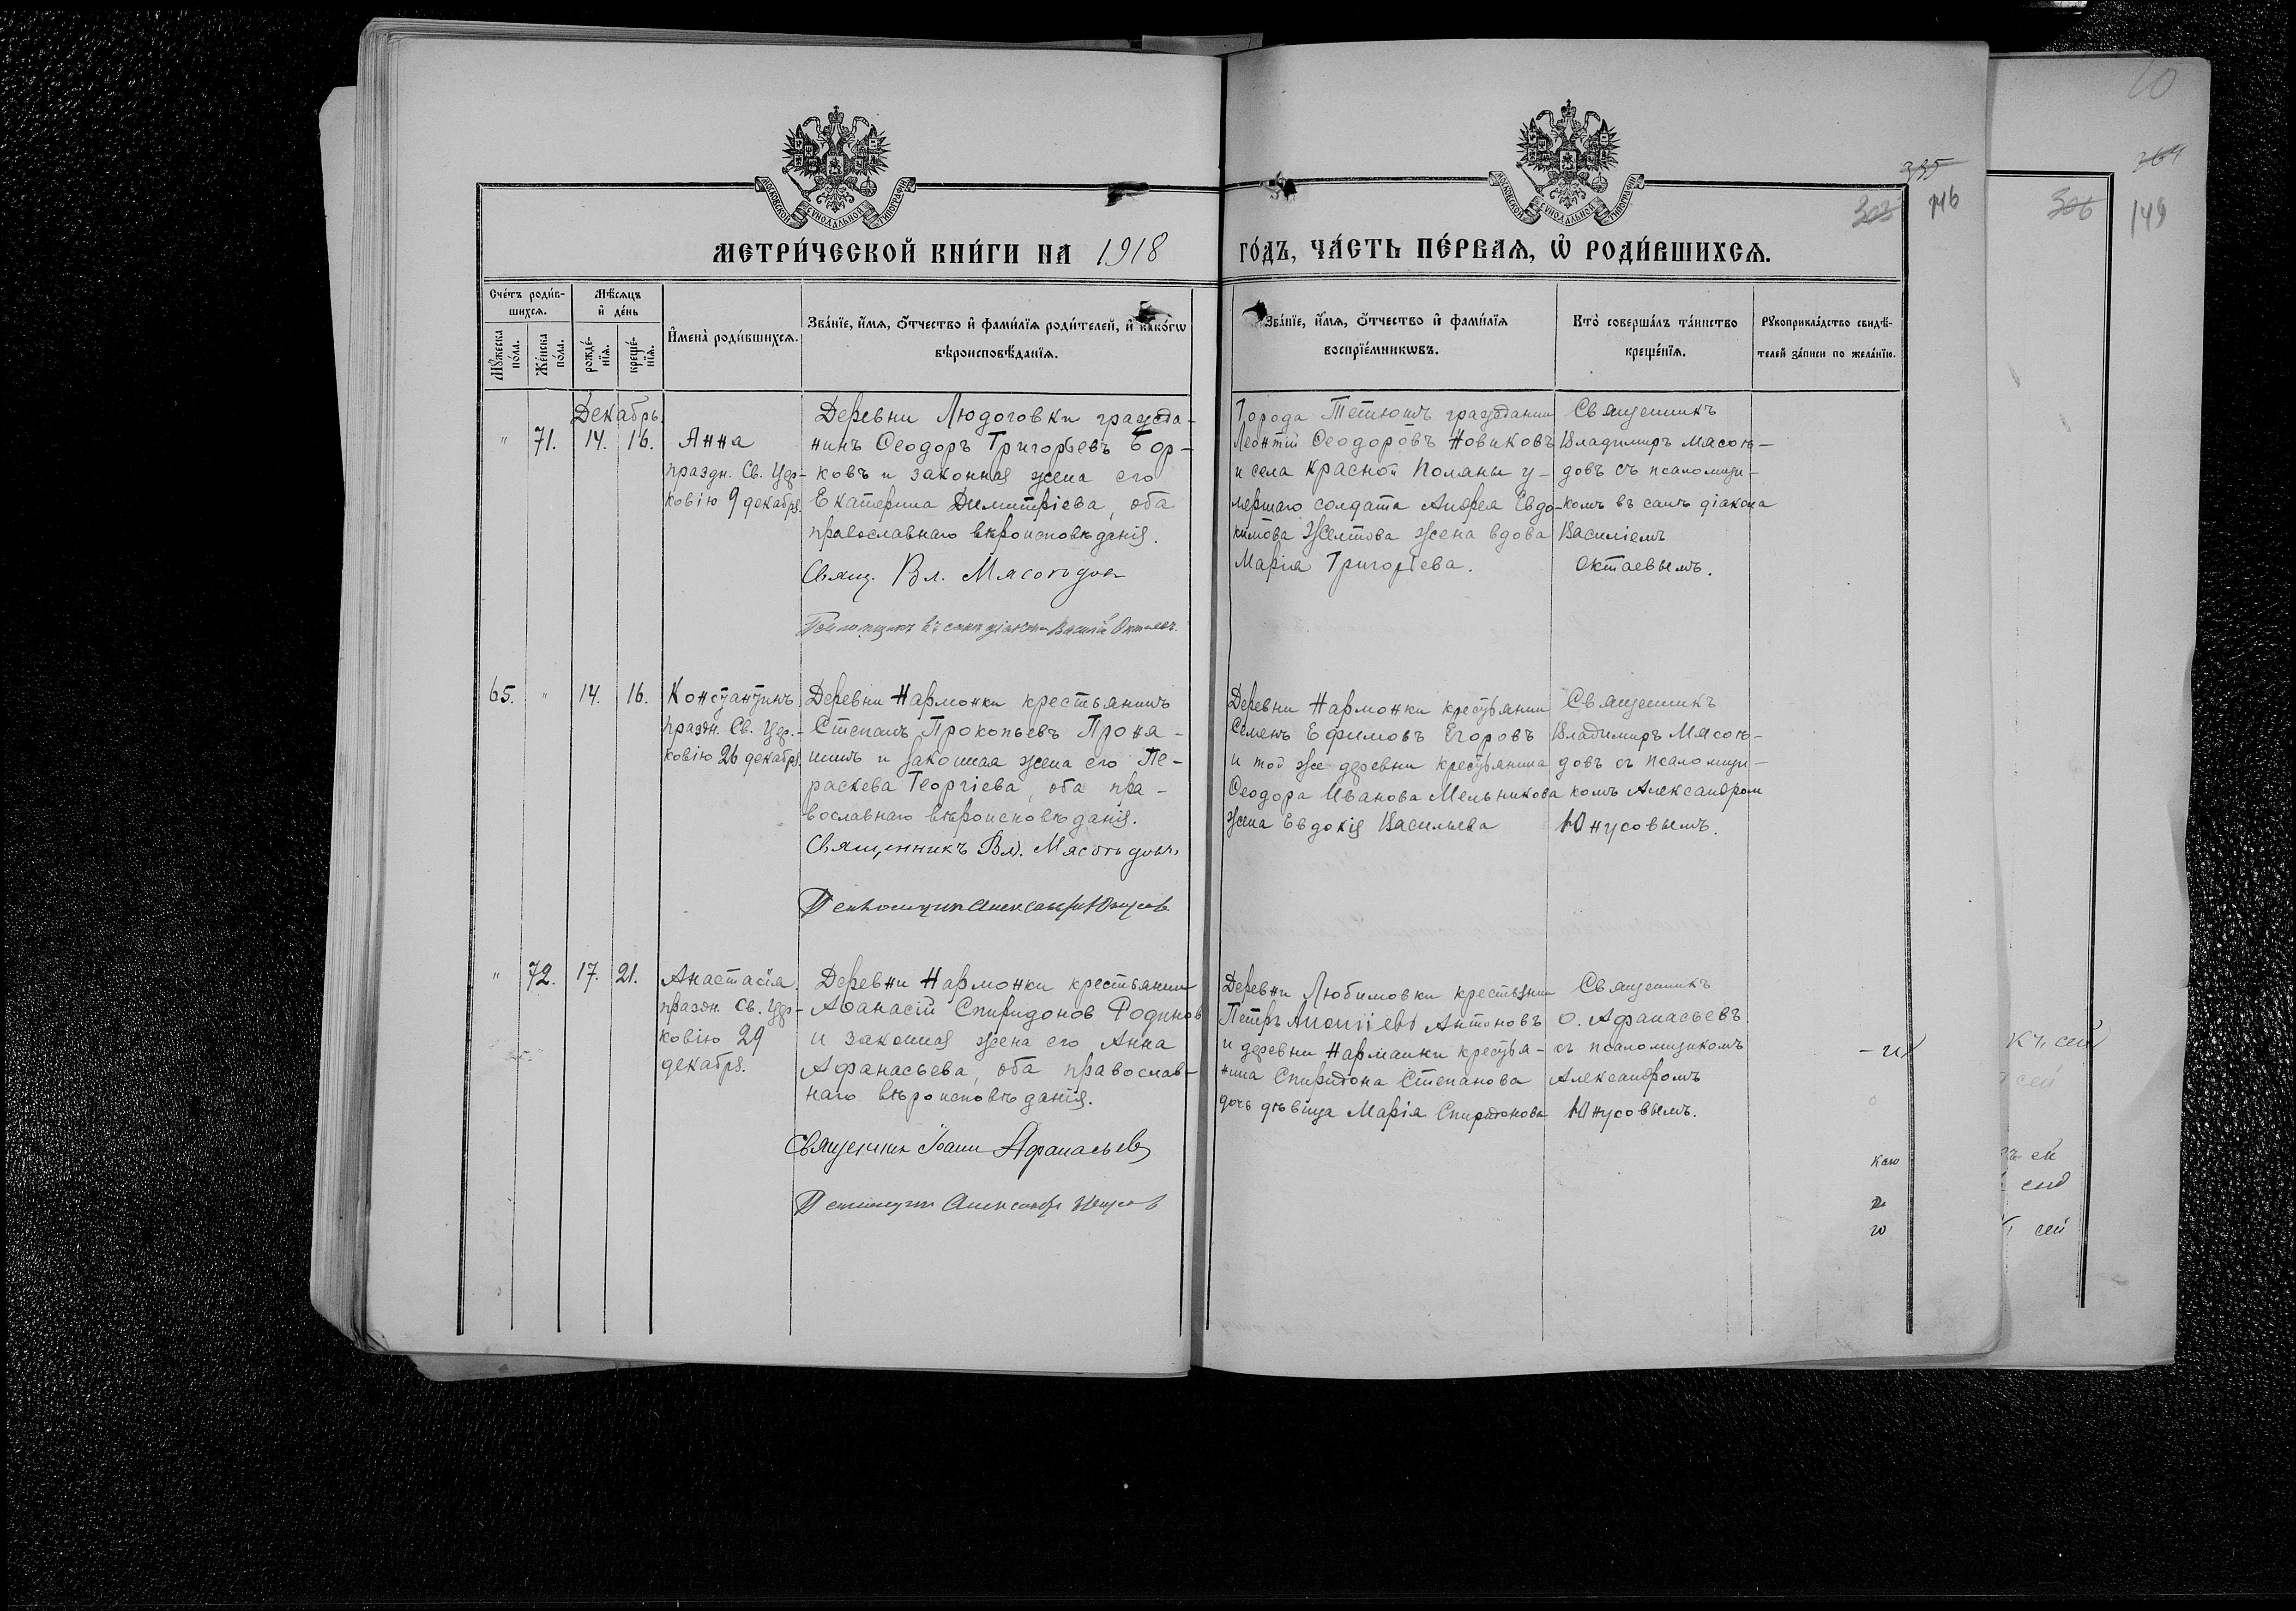 МЕТРИ́ЧЕСКОЙ КНИ́ГИ НА 1918 ГО́ДЪ, ЧА́СТЬ ПЕ́РВАЯ, Ѡ҆ РОДИ́ВШИХСЯ.
МОСКОВСКОЙ СѴНОДАЛЬНОЙ ТИПОГРАФІИ
МОСКОВСКОЙ СѴНОДАЛЬНОЙ ТИПОГРАФІИ
146
149
Сче́тъ роди́в-
шихся.
Мꙋ́жеска пола.
Же́нска по́ла.
Мѣ́сяцъ
и҆ де́нь
рожде́-
нїя.
креще́-
нїя.
И҆мена̀ роди́вшихся.
Зва́нїе, и҆́мя, ѻ҆́тчество и҆ фами́лїя роди́телей, и҆ како́гѡ
вѣроисповѣ́данїя.
Зва́нїе, и҆́мя, ѻ҆́тчество и҆ фами́лїя
воспрїе́мникѡвъ.
Кто̀ соверша́лъ та́инство
креще́нїя.
Рꙋкоприкла́дство свидѣ́-
телей за́писи по жела́нїю.
Декабрь.
" 71. 14. 16.
Анна
праздн. Св. Цер-
ковію 9 декабря.
Деревни Людоговки гражда-
нинъ Ѳеодоръ Григорьевъ Бор-
ковъ и законная жена его
Екатерина Димитріева, оба
православнаго вѣроисповѣданія.
Свящ. Вл. Мясоѣдовъ
Псаломщикъ въ санѣ діакона Василій Октаевъ.
Города Тетюшъ гражданин
Леонтій Ѳеодоровъ Новиковъ
и села Красной Поляны у-
мершаго солдата Андрея Евдо-
кимова Желтова жена вдова
Марія Григоріева.
Священникъ
Владимиръ Мясоѣ-
довъ съ псаломщи-
комъ въ санѣ діакона
Василіемъ
Октаевымъ.
65. " 14. 16.
Константинъ
праздн. Св. Цер.-
ковію 26 декабря.
Деревни Нармонки крестьянинъ
Степанъ Прокопьевъ Проня-
шинъ и законная жена его Пе-
раскева Георгіева, оба пра-
вославнаго вѣроисповѣданія.
Священникъ Вл. Мясоѣдовъ
Псаломщик Александръ Юнусов
Деревни Нармонки крестьянин
Семенъ Ефимовъ Егоровъ
и той же деревни крестьянина
Ѳеодора Иванова Мельникова
жена Евдокія Васильева
Священникъ
Владимиръ Мясоѣ-
довъ съ псаломщи-
комъ Александром
Юнусовымъ.
" 72. 17. 21.
Анастасія
праздн. Св. Цер-
ковію 29
декабря.
Деревни Нармонки крестьянин
Аѳанасій Спиридонов Родинов
и законная жена его Анна
Афанасьева, оба православ-
наго вѣроисповѣданія.
Священник Іоанн Афанасьев
Псаломщик Александр Юнусов
Деревни Любимовки крестьянин
Петръ Антоновъ
и деревни Нармонки крестья-
нина Спиридона Степанова
дочь дѣвица Марія Спиридонова
Священникъ
о. Афанасьевъ
съ псаломщикомъ
Александромъ
Юнусовымъ.
сей
сей